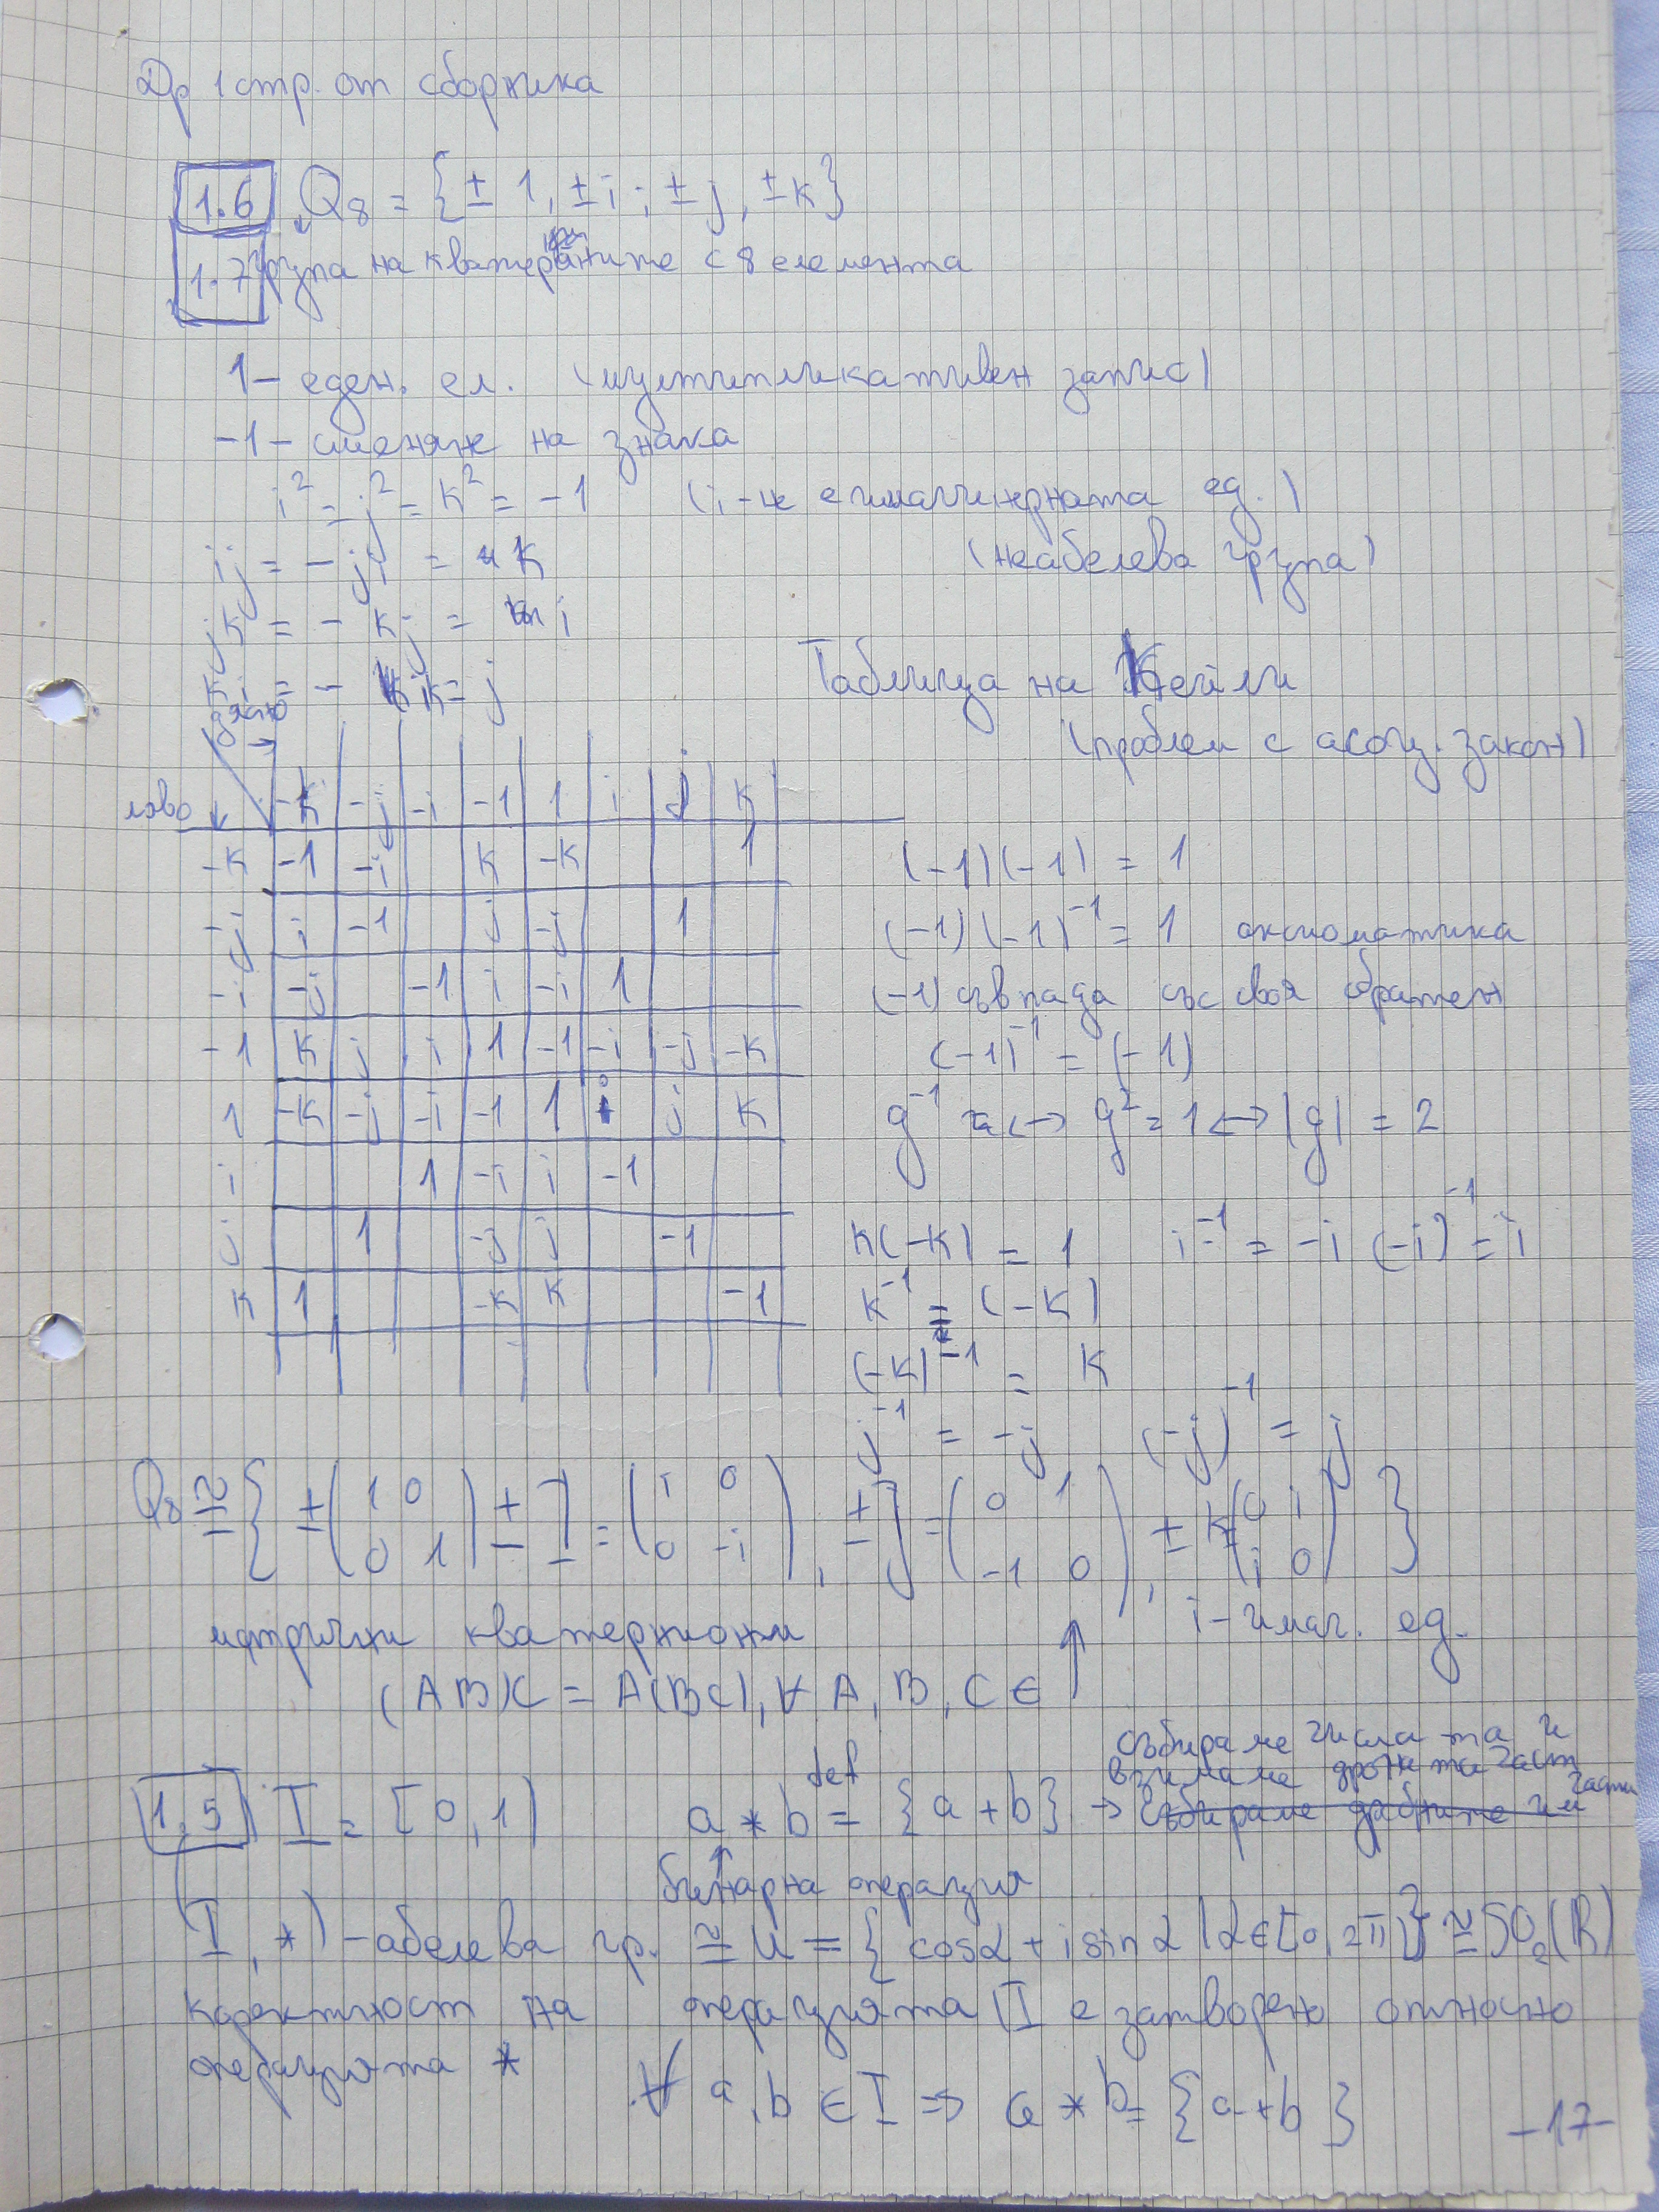 Др 1 стр. от сборника
1.6 Q₈ = {± 1, ± i ; ± j, ± k}
1.7 група на кватернионите с 8 елемента
1 – един. ел. (мултипликативен запис)
-1 – сменяне на знака
i² = j² = k² = -1 (i - не е имагинерната ед.)
ij = - ji = k (неабелева група)
jk = - kj = i
ki = - ik = j
Таблица на Кейли
(проблем с асоц. закон)
дясно
ляво -k -j -i -1 1 i j k
-k -1 -i k -k 1
-j i -1 j -j 1
-i -j -1 i -i 1
-1 k j i 1 -1 -i -j -k
1 -k -j -i -1 1 i j k
i 1 -i i -1
j 1 -j j -1
k 1 -k k -1
(-1)(-1) = 1
(-1)(-1)⁻¹ = 1 аксиоматика
(-1) съвпада със своя обратен
(-1)⁻¹ = (-1)
g⁻¹ = ↔ g² = 1 ↔ |g| = 2
k(-k) = 1 i⁻¹ = -i (-i)⁻¹ = i
k⁻¹ = (-k)
(-k)⁻¹ = k
j⁻¹ = -j (-j)⁻¹ = j
Q₈ ≅ { ± (1 0 0 1) ± I = (i 0 0 -i), ± J = (0 1 -1 0), ± K = (0 i i 0) }
матрични кватерниони i - имаг. ед.
(AB)C = A(BC), ∀ A, B, C ∈ ↑
събираме числата и
взимаме дробната част
1.5 I = [0,1) a * b def = {a + b} → събираме дробните им части
бинарна операция
I, *) – абелева гр. ≅ U = { cosα + i sinα | α ∈ [0, 2π)} ≅ SO₂(R)
коректност на операцията (I е затворено относно
операцията *
∀ a, b ∈ I ⇒ a * b = {a + b}
-17-